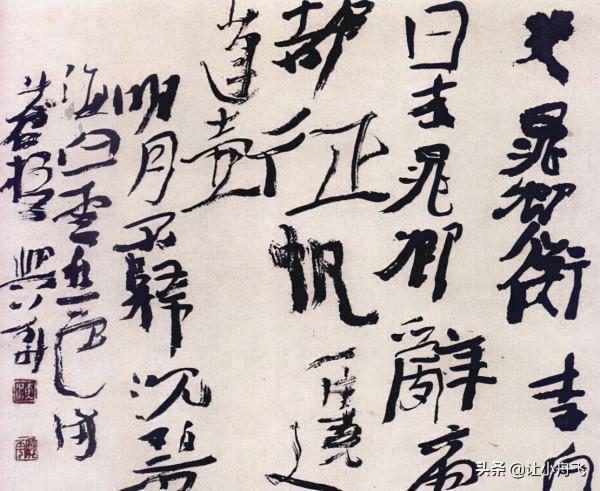 哭晁卿衡 李白
日本晁卿辭帝
都征帆一片遶
蓬壺
明月不歸沈碧
海白雲愁色滿
蒼梧
头条 @让小舟飞